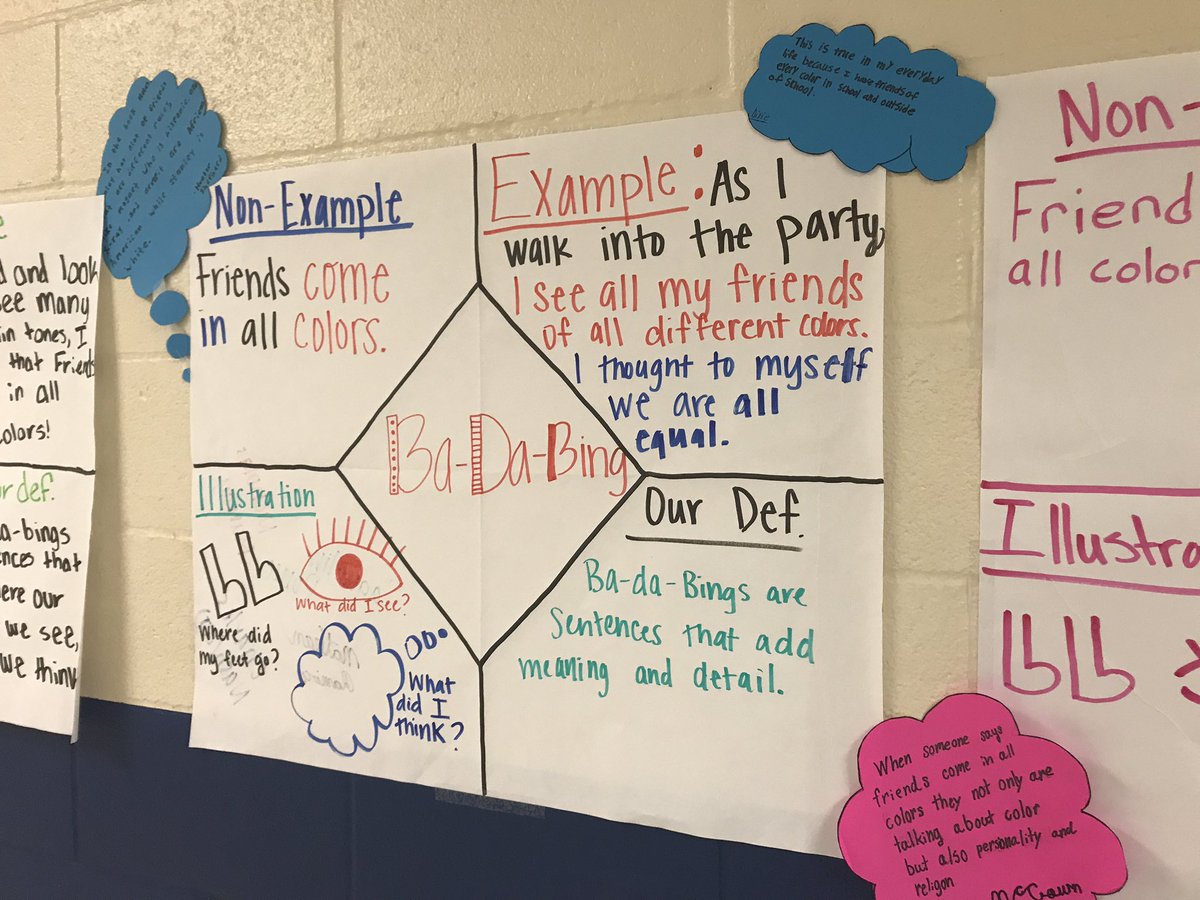 This is true in my everyday
life because I have friends of
every color in school and outside
of school.
d and look
see many
in tones, I
that Friends
in all
colors!
ur def.
a-bings
nces that
here our
we see,
we think
Non-Example
Friends come
in all colors.
Example: As I
walk into the party,
I see all my friends
of all different colors.
I thought to myself
we are all
equal.
Ba-Da-Bing
Illustration
Where did
my feet go?
What did I see?
What
did I
think?
Our Def.
Ba-da-Bings are
Sentences that add
meaning and detail.
Non-
Friend
all color
Illustra
When someone says
friends come in all
colors they not only are
talking about color
but also personality and
religon
McCown